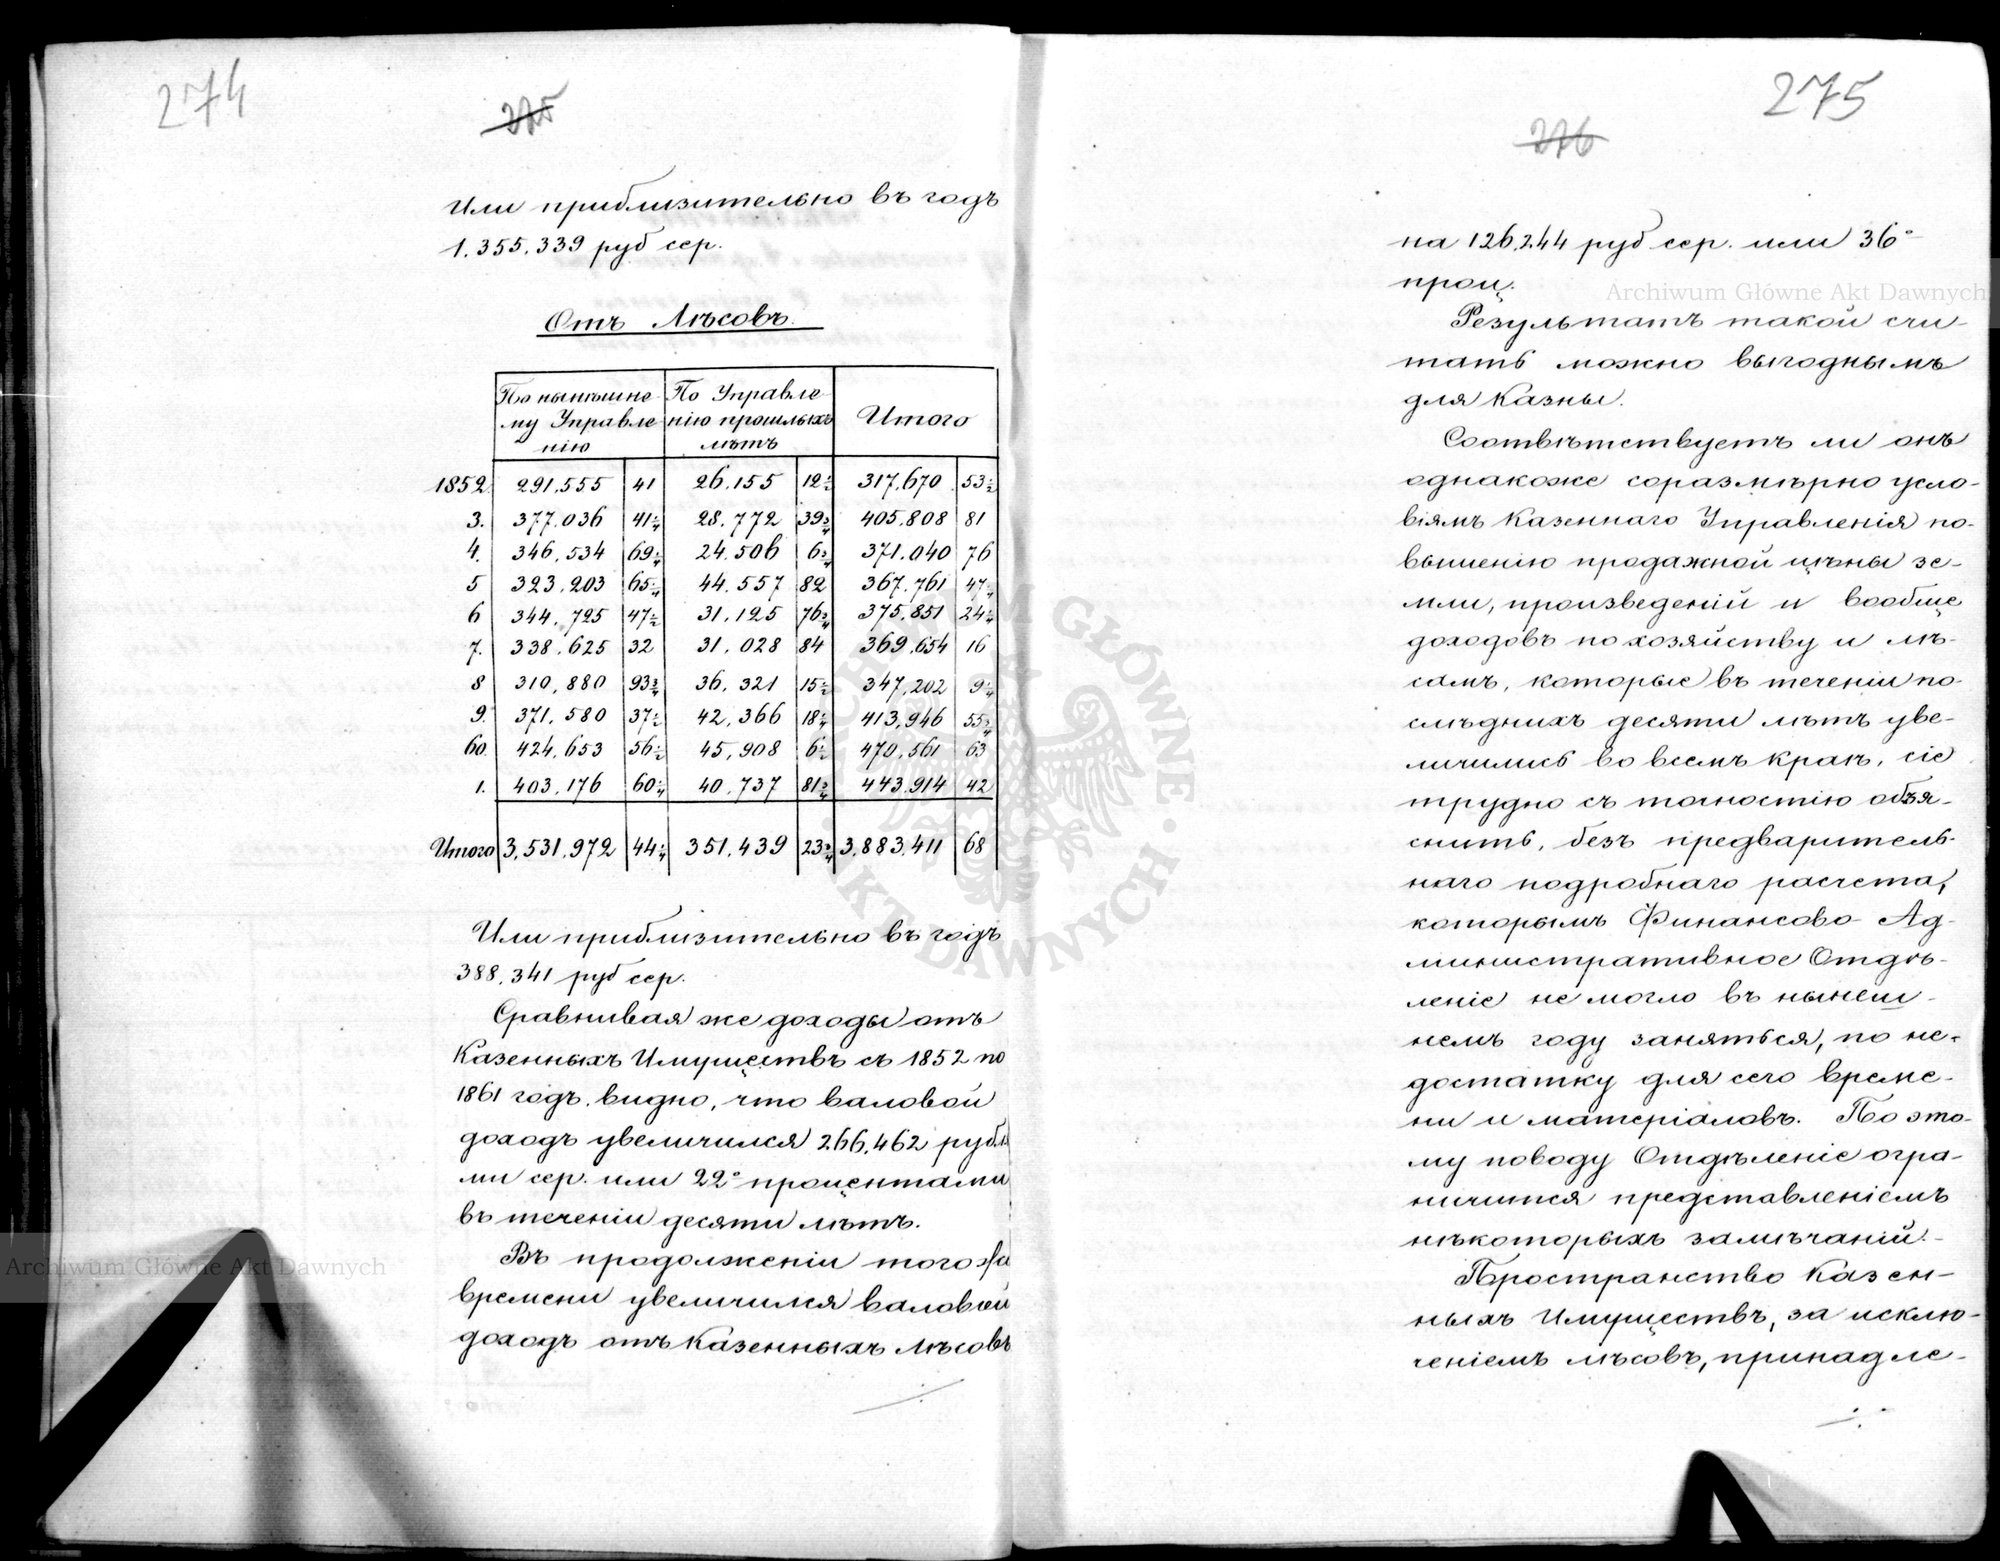 274
275
Или приблизительно въ годъ
1.355.339 руб сер.
Отъ Лѣсовъ.
По нынѣшне- По Управле- Итого
му Управле- нію прошлыхъ
нію лѣтъ
1852. 291.555 41 26.155 12½ 317.670 53½
3. 377.036 41¼ 28.772 39¾ 405.808 81
4. 346.534 69¼ 24.506 6¾ 371.040 76
5 323.203 65¼ 44.557 82 367.761 47¼
6 344.725 47½ 31.125 76¾ 375.851 24¼
7. 338.625 32 31.028 84 369.654 16
8 310.880 93¾ 36.321 15½ 347.202 9¼
9. 371.580 37½ 42.366 18¼ 413.946 55¾
60. 424.653 56½ 45.908 6½ 470.561 63
1. 403.176 60¼ 40.737 81¾ 443.914 42
Итого 3.531.972 44¼ 351.439 23¾ 3.883.411 68
Или приблизительно въ годъ
388.341 руб сер.
Сравнивая же доходы отъ
Казенныхъ Имуществъ съ 1852 по
1861 годъ. видно, что валовой
доходъ увеличился 266.462 рубля
ми сер. или 22° процентами
въ теченіи десяти лѣтъ.
Въ продолженіи того же
времени увеличился валовой
доходъ отъ Казенныхъ Лѣсовъ
275
276
на 126.244 руб сер. или 36°
проц.
Результатъ такой счи-
тать можно выгоднымъ
для Казны.
Соотвѣтствуетъ ли онъ
однакоже соразмѣрно усло-
віямъ Казеннаго Управленія по-
вышенію продажной цѣны зе-
мли, произведеній и вообще
доходовъ по хозяйству и лѣ-
самъ, которые въ теченіи по-
слѣднихъ десяти лѣтъ уве-
личились во всемъ краѣ, сіе
трудно съ точностію объя-
снить, безъ предваритель-
наго подробнаго расчета,
которымъ Финансово Ад-
министративное Отдѣ-
леніе не могло въ нынеш-
немъ году заняться, по не-
достатку для сего време-
ни и матеріаловъ. По это-
му поводу Отдѣленіе огра-
ничится представленіемъ
нѣкоторыхъ замѣчаній.-
Пространство Казен-
ныхъ Имуществъ, за исклю-
ченіемъ лѣсовъ, принадле-
Archiwum Główne Akt Dawnych
Archiwum Główne Akt Dawnych
ARCHIWUM GŁÓWNE · AKT DAWNYCH ·